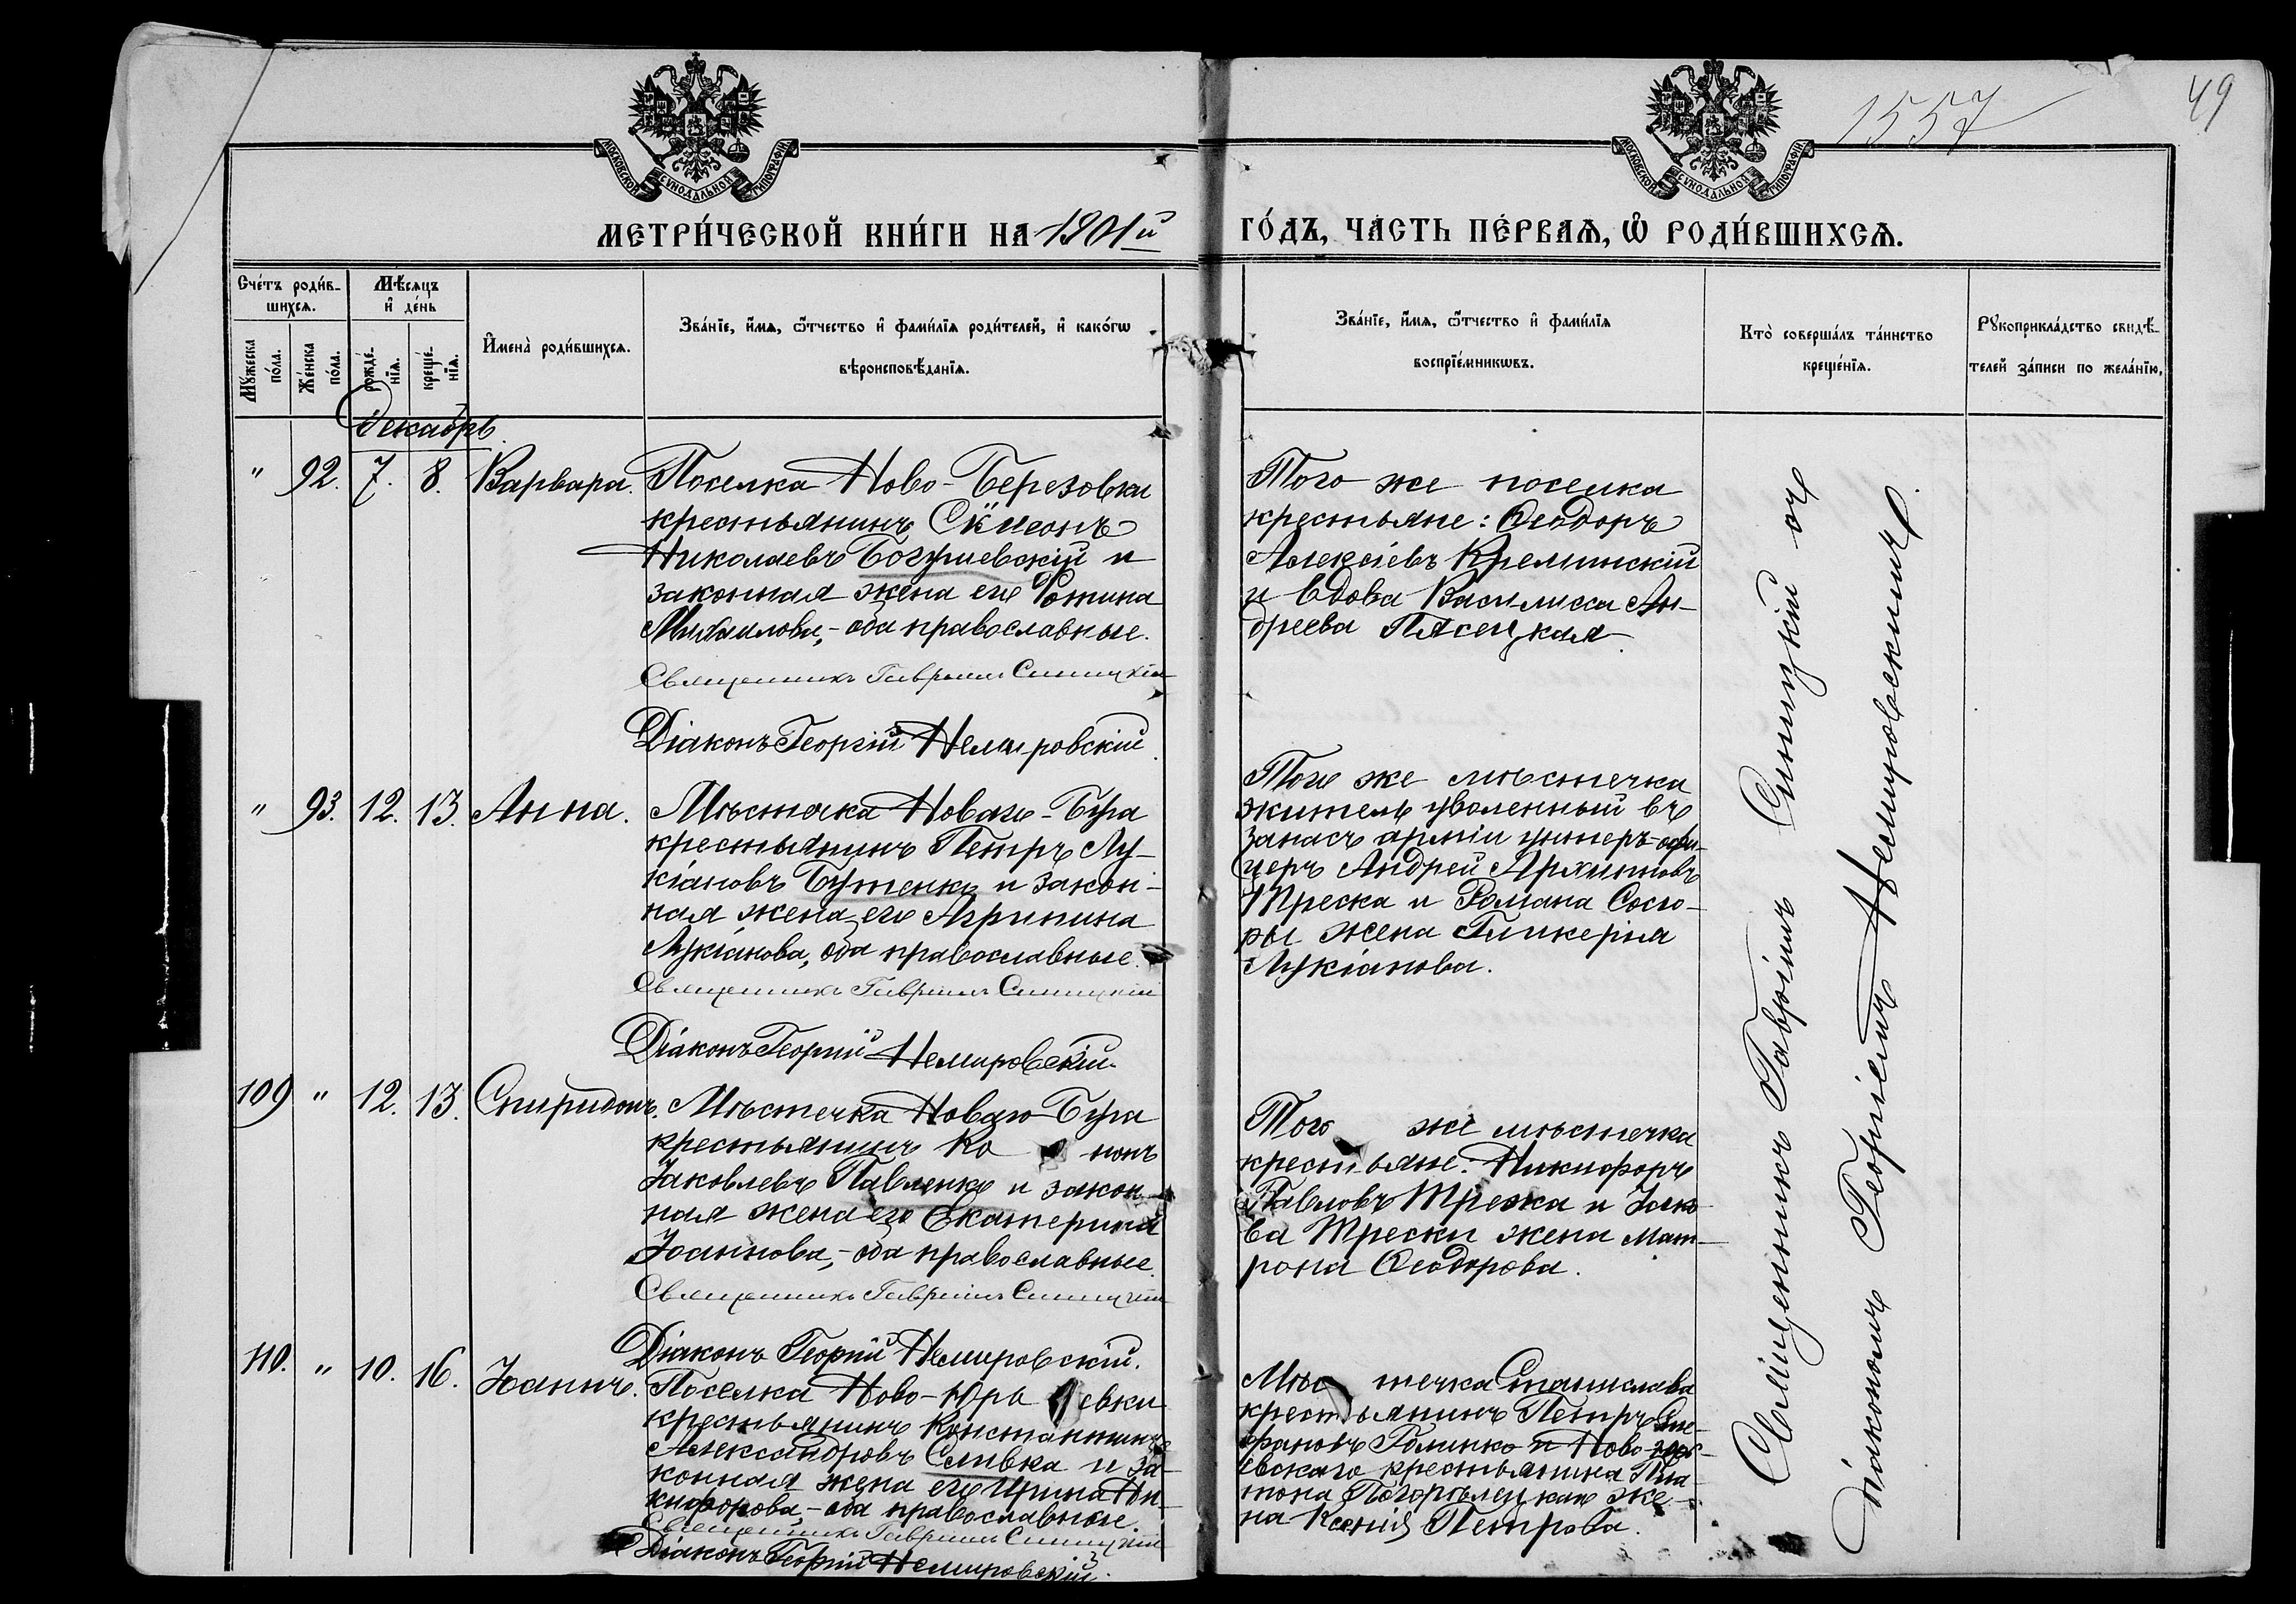 1557
49
МОСКОВСКОЙ СѴНОДАЛЬНОЙ ТИПОГРАФІИ
МОСКОВСКОЙ СѴНОДАЛЬНОЙ ТИПОГРАФІИ
МЕТРИ́ЧЕСКОЙ КНИ́ГИ НА 1901й
ГО́ДЪ, ЧА́СТЬ ПЕ́РВАѦ, Ѽ РОДИ́ВШИХСѦ.
Сче́тъ роди́в-
шихсѧ.
Мꙋ́жеска по́ла.
Же́нска по́ла.
Мѣ́сѧцъ
и҆ де́нь
рожде́-
нїѧ.
креще́-
нїѧ.
И҆мена̀ роди́вшихсѧ.
Зва́нїе, и҆́мѧ, ѻ҆́тчество и҆ фами́лїѧ роди́телей, и҆ како́гѡ
вѣроисповѣ́данїѧ.
Зва́нїе, и҆́мѧ, ѻ҆́тчество и҆ фами́лїѧ
воспрїе́мникѡвъ.
Кто̀ соверша́лъ та́инство
креще́нїѧ.
Рꙋкоприкла́дство свидѣ́-
телей за́писи по жела́нїю.
Декабрь
" 92. 7. 8. Варвара.
Поселка Ново-Березовки
крестьянинъ Сѵмеонъ
Николаевъ Богушевскій и
законная жена его Фотина
Михаилова,- оба православные.
Священникъ Гавріилъ Синицкій
Діаконъ Георгій Немировскій
Того же поселка
крестьяне: Ѳеодоръ
Алексіевъ Креминскій
и вдова Василисса Ан-
дреева Пясецкая
" 93. 12. 13. Анна.
Мѣстечка Новаго-Буга
крестьянинъ Петръ Лу-
кіановъ Бутенко и закон-
ная жена его Агрипина
Лукіанова, оба православные.
Священникъ Гавріилъ Синицкій
Діаконъ Георгій Немировскій.
Того же мѣстечка
житель уволенный въ
запасъ арміи унтеръ-офи-
церъ Андрей Архиповъ
Треска и Романа Сосю-
ры жена Гликерія
Лукіанова.
109 " 12. 13. Спиридонъ.
Мѣстечка Новаго-Буга
крестьянинъ Ко нонъ
Іаковлевъ Павленко и закон
ная жена его Екатерина
Іоаннова,- оба православные.
Священникъ Гавріилъ Синицкій
Діаконъ Георгій Немировскій.
Того же мѣстечка
крестьяне: Никифоръ
Павловъ Треска и Іако-
ва Трески жена Мат-
рона Ѳеодорова.
110. " 10. 16. Іоаннъ.
Поселка Ново-Юрь евки
крестьянинъ Константинъ
Александровъ Сливка и за-
конная жена его Ирина Ни-
кифорова,- оба православные.
Священникъ Гавріилъ Синицкій
Діаконъ Георгій Немировскій.
Мѣс течка Станислава
крестьянинъ Петръ
и Ново-
евскаго крестьянина Пла-
тона же-
на Ксенія Петрова.
Священникъ Гавріилъ Синицкій съ
діакономъ Георгіемъ Немировскимъ.